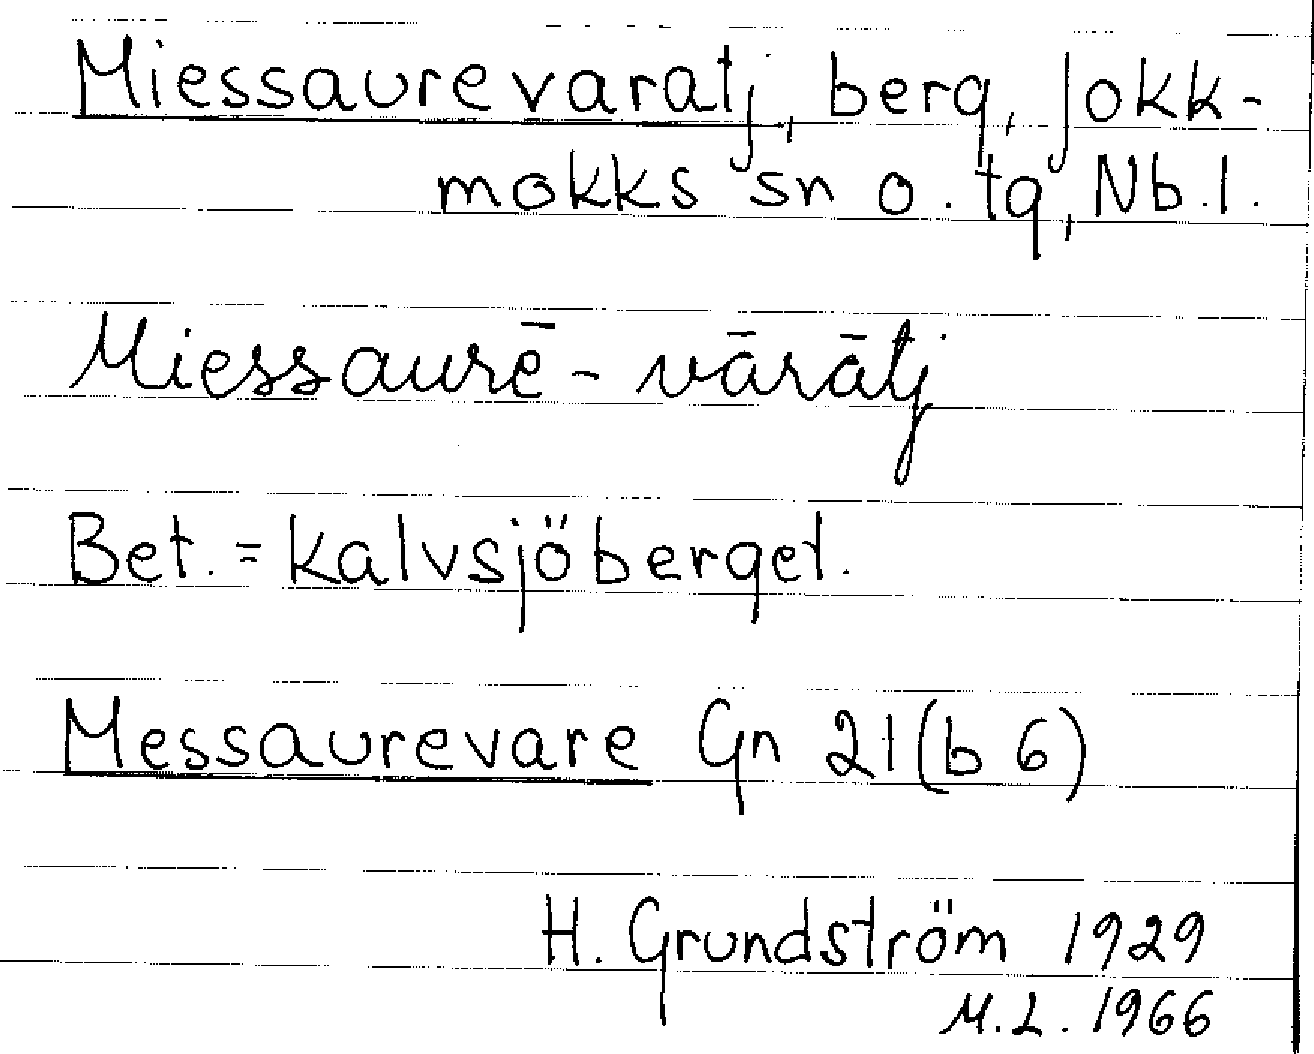 Miessaurevaratj, berg, Jokk-
mokks sn o. tg, Nb.l.
Miessaurē-vārātj
Bet. = kalvsjöberget.
Messaurevare Gn 21(b 6)
H. Grundström 1929
M.L. 1966